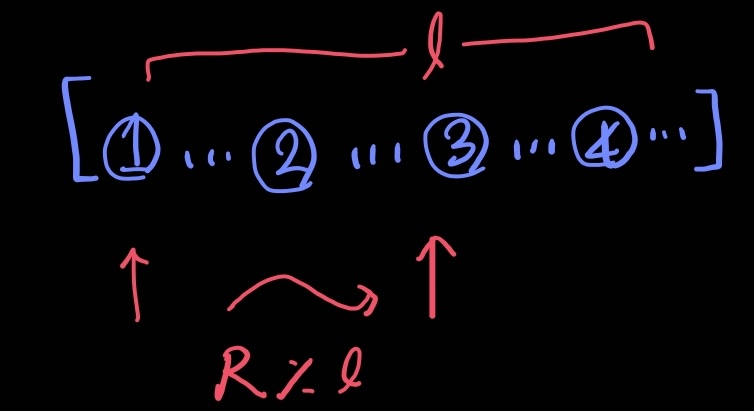 l
[ 1 ... 2 ... 3 ... 4 ... ]
R % l